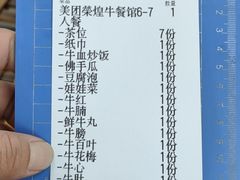 美团荣煌牛餐馆6-7 1
人餐
-茶位 7份
-纸巾 1份
-牛血炒饭 1份
-佛手瓜 1份
-豆腐泡 1份
-娃娃菜 1份
-牛红 1份
-牛腩 1份
-鲜牛丸 1份
-牛膀 1份
-牛百叶 1份
-牛花梅 1份
-牛心 1份